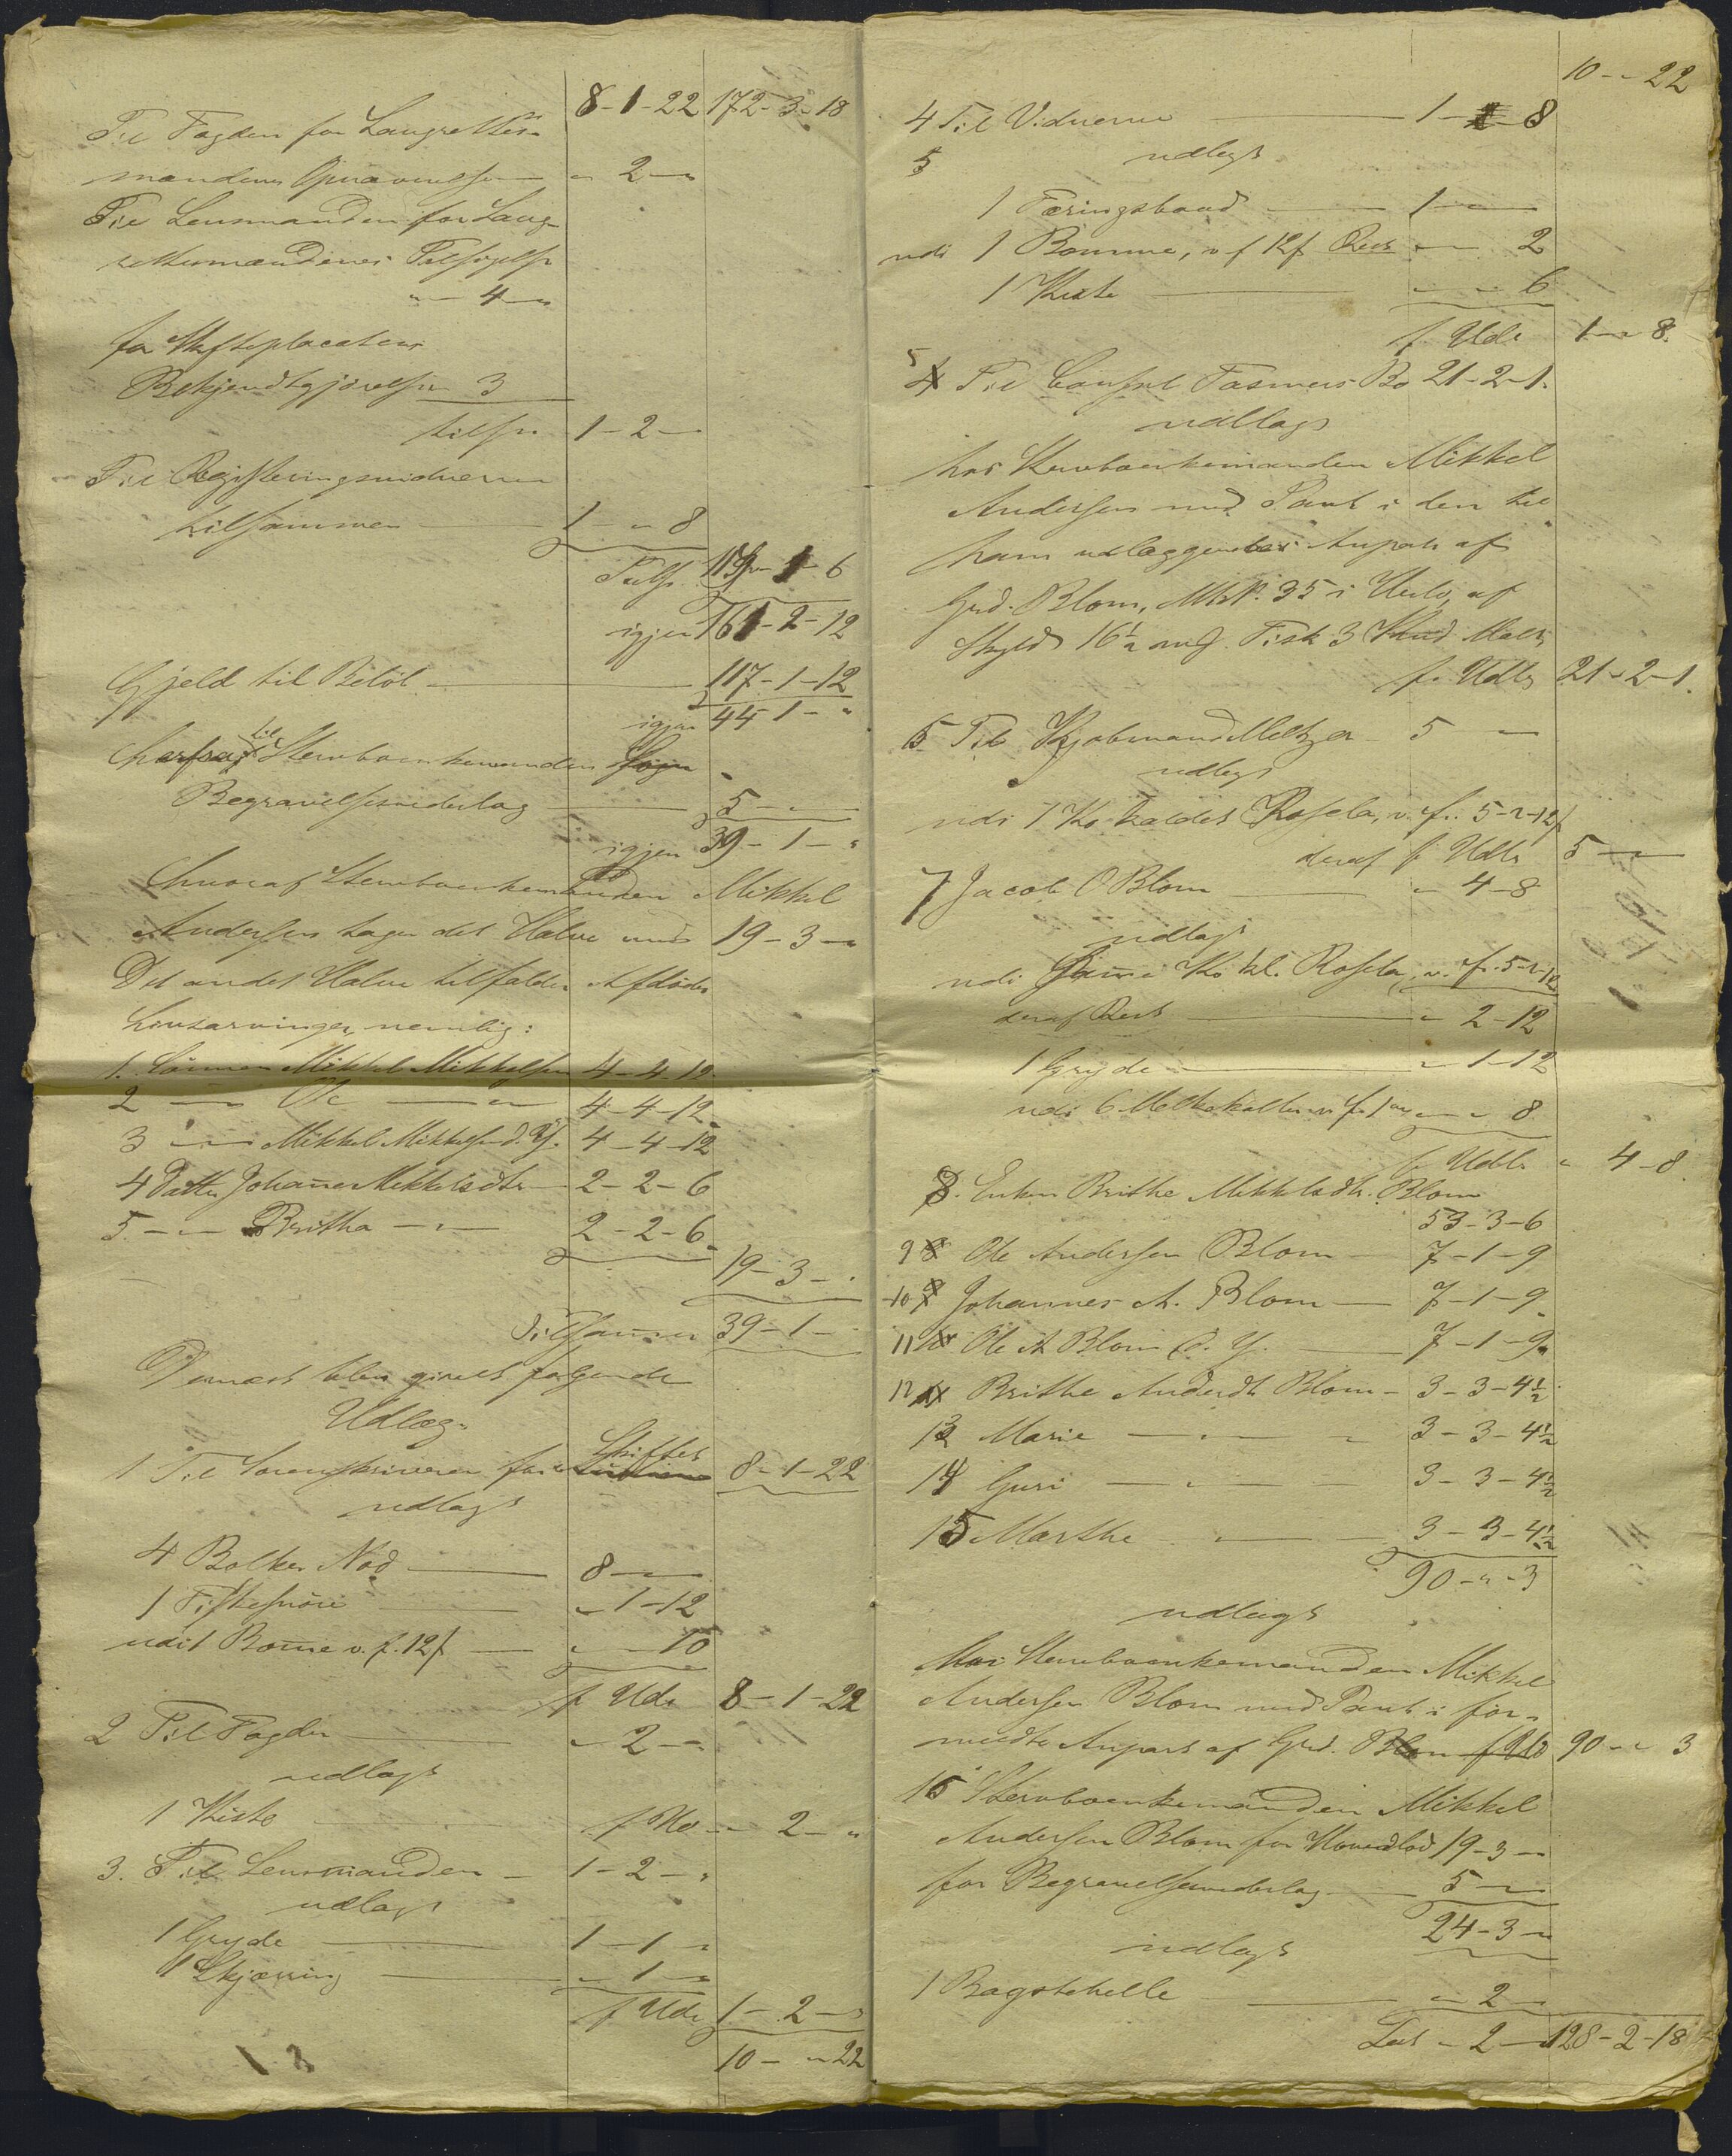 8-1-22 172-3-18
Til Fogden for Laugrettes-
mændenes Opnævnelse - " 2 - "
Til Lensmanden for Laug-
rettesmændenes Tilsigelse
" - 4 - "
for Skifteplacatens
Bekjendtgjörelse 3
tils. 1 - 2 -
Til Registeringsvidnerne
tilsammen 1 - " 8
Tils. 11 - 1 - 6
igjen 161 - 2 - 12
Gjeld til Belöb 117 - 1 - 12
igjen 44 1 - "
hvorfra til Stervboenkemanden
Begravelsesvederlag 5 - " -
igjen 39 - 1 - "
hvoraf Stervboenkemanden Mikkel
Andersen tager det Halve med 19 - 3 - "
Det andet Halve tilfalder Afdödes
Livsarvinger, nemlig:
1. Sönnen Mikkel Mikkelsen 4 - 4 - 12
2 - " Ole - " - 4 - 4 - 12
3 - " - Mikkel Mikkelsen d. Y. 4 - 4 - 12
4 Datter Johanne Mikkelsdtr 2 - 2 - 6
5 - " - Britha - " - 2 - 2 - 6
19 - 3 - "
Tilsammen 39 - 1 -
Dernæst blev gjort fölgende
Udlæg.
1 Til Sorenskriveren for Skiftet 8 - 1 - 22
udlagt
4 Bolker Nöd 8 - " -
1 Fiskesnöre " - 1 - 12
udi 1 Bomme v. f. 12 f - " - 10
f Uds 8 - 1 - 22
2 Til Fogden " 2 - "
udlagt
1 Kiste f Uds - " 2 - "
3. Til Lensmanden - 1 - 2 - "
udlagt
1 Gryde 1 - 1 "
1 Skjæring " 1 - "
f Uds 1 - 2 - "
10 - " 22
10 - " 22
4 Til Vidnerne 1 - " - 8
5 udlagt
1 Færingsbaad 1 - " -
udi 1 Bomme, v f 12 f Rest " - 2
1 Kiste " - " 6
f. Uds 1 - " 8
5 Til Consul Fasmers Bo 21 - 2 - 1.
udlagt
hos Stervboenkemanden Mikkel
Andersen med Pant i den til
ham udlæggendes Anpart af
Grd. Blom, Mtr N. 35 i Herlö, af
Skyld 16½ mk. Fisk 3 Malt,
f. Uds 21 - 2 - 1.
6 Til Kjöbmand Meltzer - 5 " -
udlagt
udi 1 Ko kaldet Rosela, v. f. 5 - 2 - 12 f
deraf f Uds 5 - " -
7 Jacob O Blom " - 4 - 8
udlagt
udi samme Ko kl. Rosela, v. f. 5 - 2 - 12
deraf Rest " - 2 - 12
1 Gryde " - 1 - 12
udi 6 Melkekaller v f 1 " - " 8.
f Uds " 4 - 8
8. Enken Brithe Mikkelsdtr. Blom
53 - 3 - 6
9 Ole Andersen Blom 7 - 1 - 9
10 Johannes A. Blom 7 - 1 - 9
11 Ole A Blom d. Y. 7 - 1 - 9
12 Brithe Andersdtr Blom - 3 - 3 - 4½
13 Marie - " - 3 - 3 - 4½
14 Guri - " - 3 - 3 - 4½
15 Marthe - " - 3 - 3 - 4½
90 - " - 3
udlagt
hos Stervboenkemanden Mikkel
Andersen Blom med Pant i for-
meldte Anpart af Grd. Blom f Uds 90 - " 3
16 Stervboenkemanden Mikkel
Andersen Blom for Hovedlod 19 - 3 - "
for Begravelsesvederlag 5 - " -
24 - 3 - "
udlagt
1 Bagstehelle " - 2 -
Lat. " 2 - " 128 - 2 - 18